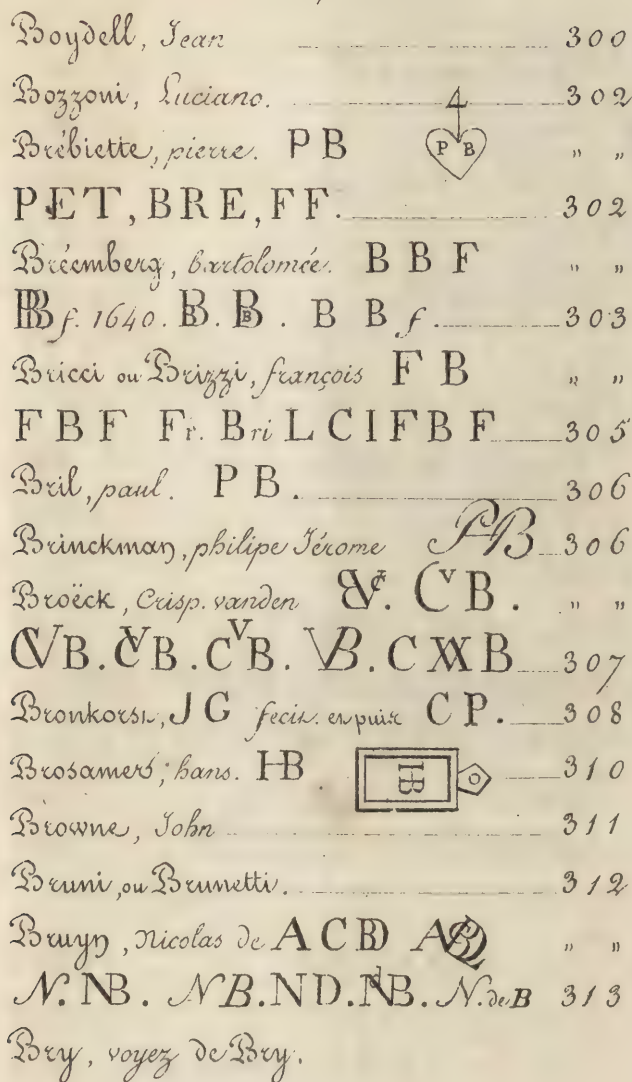 Boydell, Jean 300
Bozzoni, Luciano. 302
Brébiette, pierre. P B 4 P B " "
PET, BRE, FF. 302
Bréemberg, bartolomée. B B F " "
BB f. 1640. B. B. B B f. 303
Bricci ou Brizzi, françois F B " "
F B F Fr. Bri L C I F B F 305
Bril, paul. P B. 306
Brinckman, philipe Jérome PHB 306
Broëck, Crisp. vanden C V B. " "
CVB. CVB. CVB. VB. C XX B 307
Bronkorst, J G fecit. en puis C P. 308
Brosamers, hans. HB HB 310
Browne, John 311
Bruni, ou Brunetti. 312
Bruyn, Nicolas de A C BD " "
N. NB. NB. ND. NB. N. de B 313
Bry, voyez de Bry.